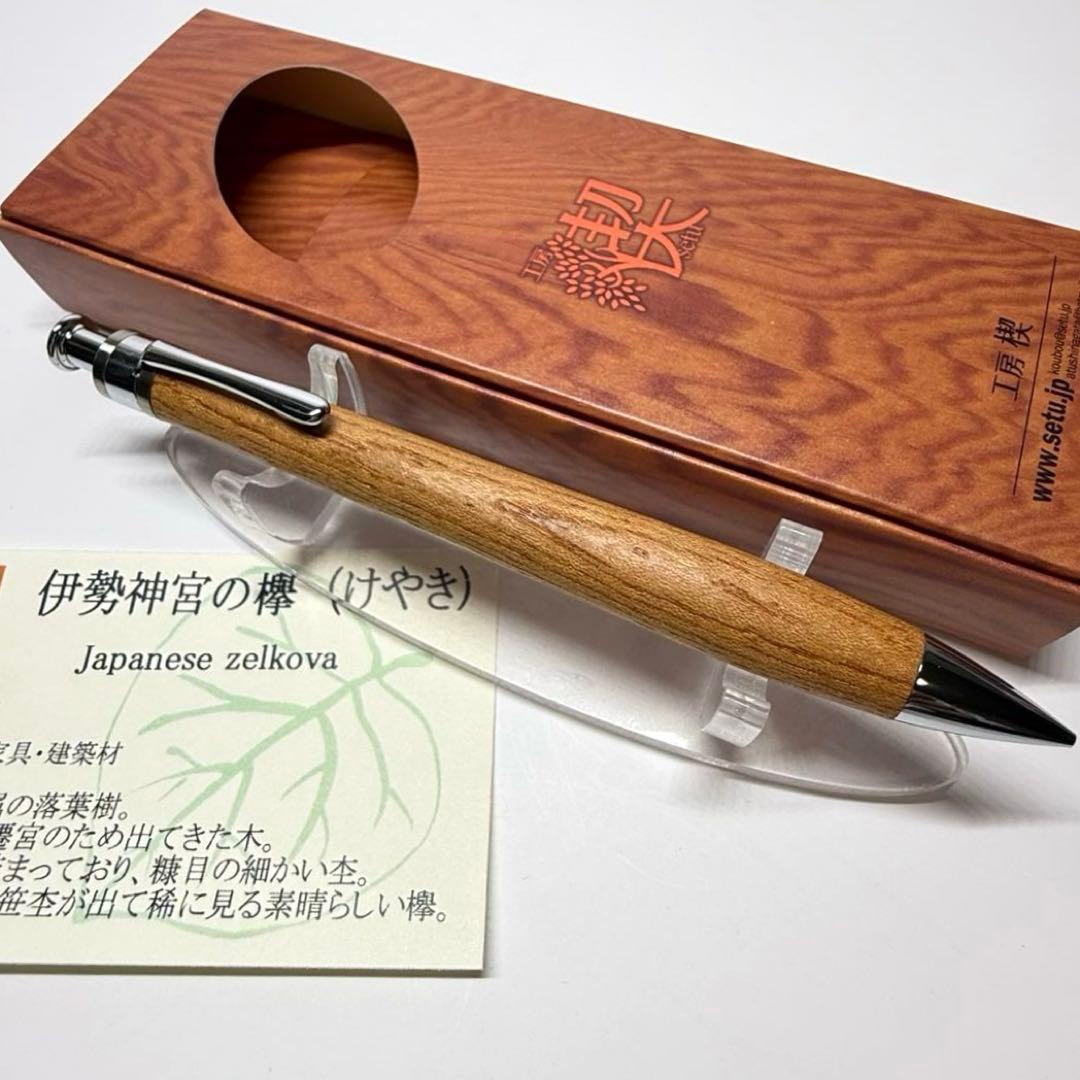 工房
楔
setu
工房 楔
www.setu.jp
koubou@setu.jp
伊勢神宮の欅 (けやき)
Japanese zelkova
具・建築材
の落葉樹。
遷宮のため出てきた木。
まっており、糠目の細かい杢。
笹杢が出て稀に見る素晴らしい欅。